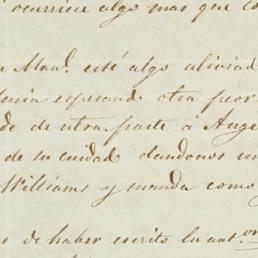 ocurriere algo mas que co
Man.l esté algo aliviad
esperand otra peor
de de ntra. parte á Ange
de su cuidad dandonos un
Williams y manda como
s de haber escrito la ant.or